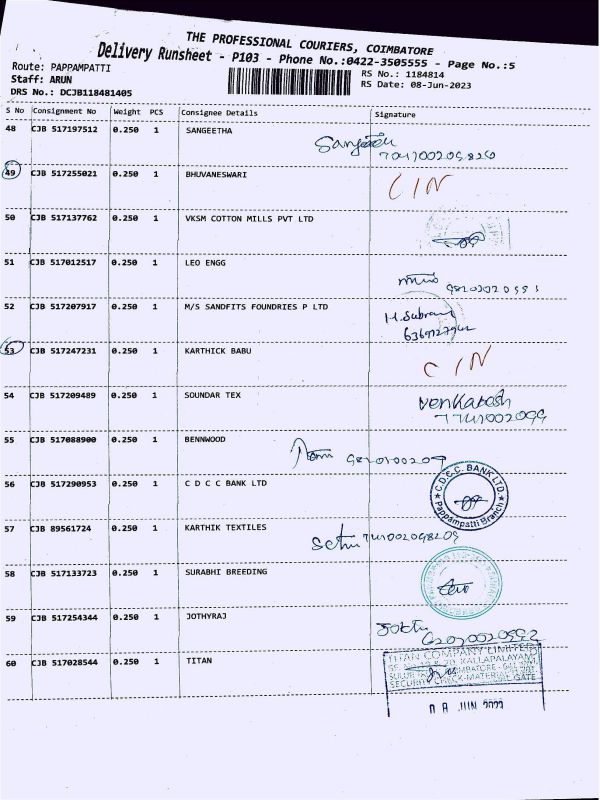 THE PROFESSIONAL COURIERS, COIMBATORE
Delivery Runsheet - P103 - Phone No.:0422-3505555 - Page No.:5
Route: PAPPAMPATTI
RS No.: 1184814
Staff: ARUN
RS Date: 08-Jun-2023
DRS No.: DCJB118481405
S No Consignment No Weight PCS Consignee Details Signature
48 CJB 517197512 0.250 1 SANGEETHA
49 CJB 517255021 0.250 1 BHUVANESWARI CIN
50 CJB 517137762 0.250 1 VKSM COTTON MILLS PVT LTD
51 CJB 517012517 0.250 1 LEO ENGG
52 CJB 517207917 0.250 1 M/S SANDFITS FOUNDRIES P LTD
53 CJB 517247231 0.250 1 KARTHICK BABU CIN
54 CJB 517209489 0.250 1 SOUNDAR TEX Venkatesh
55 CJB 517088900 0.250 1 BENNWOOD
56 CJB 517290953 0.250 1 C D C C BANK LTD C.D.C.C. BANK LTD. Pappampatti Branch
57 CJB 89561724 0.250 1 KARTHIK TEXTILES
58 CJB 517133723 0.250 1 SURABHI BREEDING
59 CJB 517254344 0.250 1 JOTHYRAJ
60 CJB 517028544 0.250 1 TITAN TITAN COMPANY LIMITED
KALLAPALAYAM
08 JUN 2023